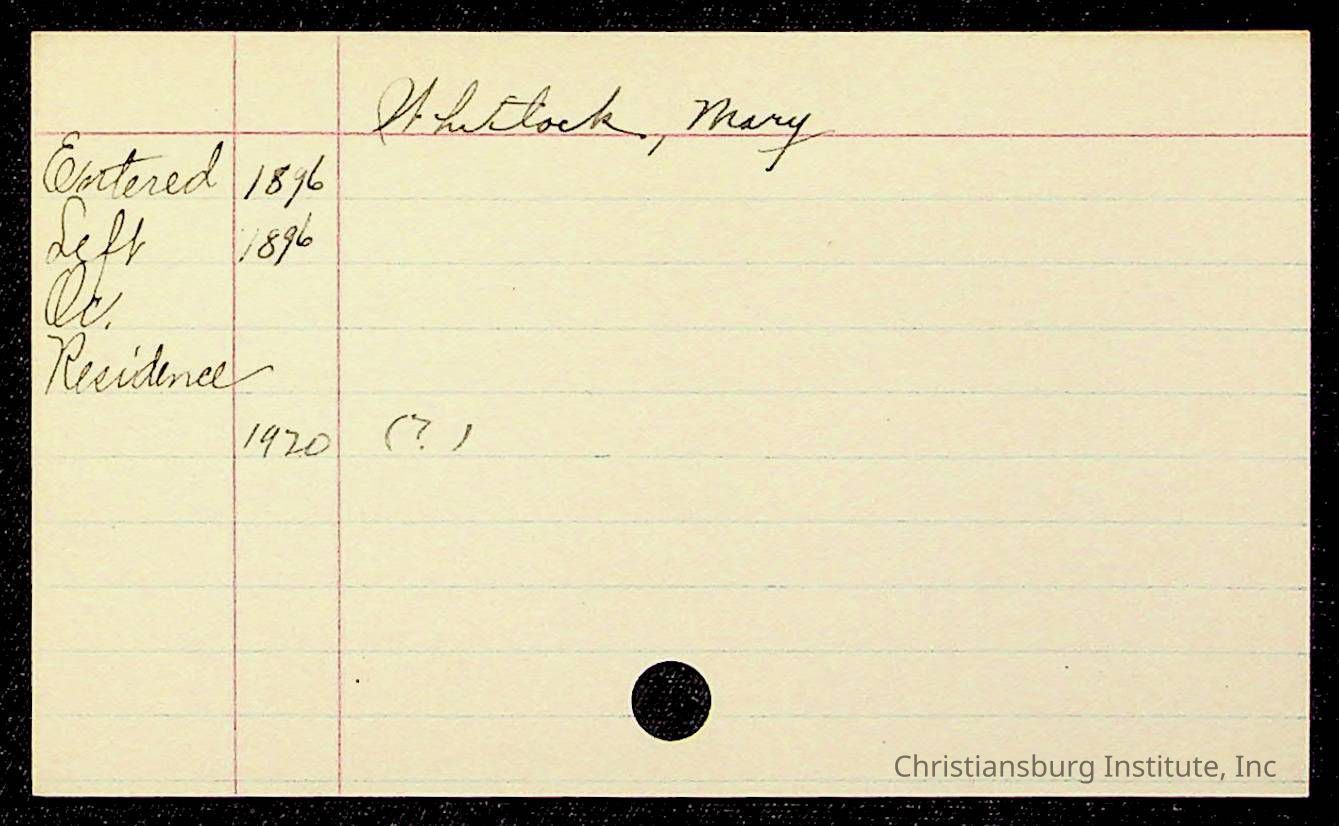 Whitlock, Mary
Entered 1896
Left 1896
Oc.
Residence
1920 (?)
Christiansburg Institute, Inc